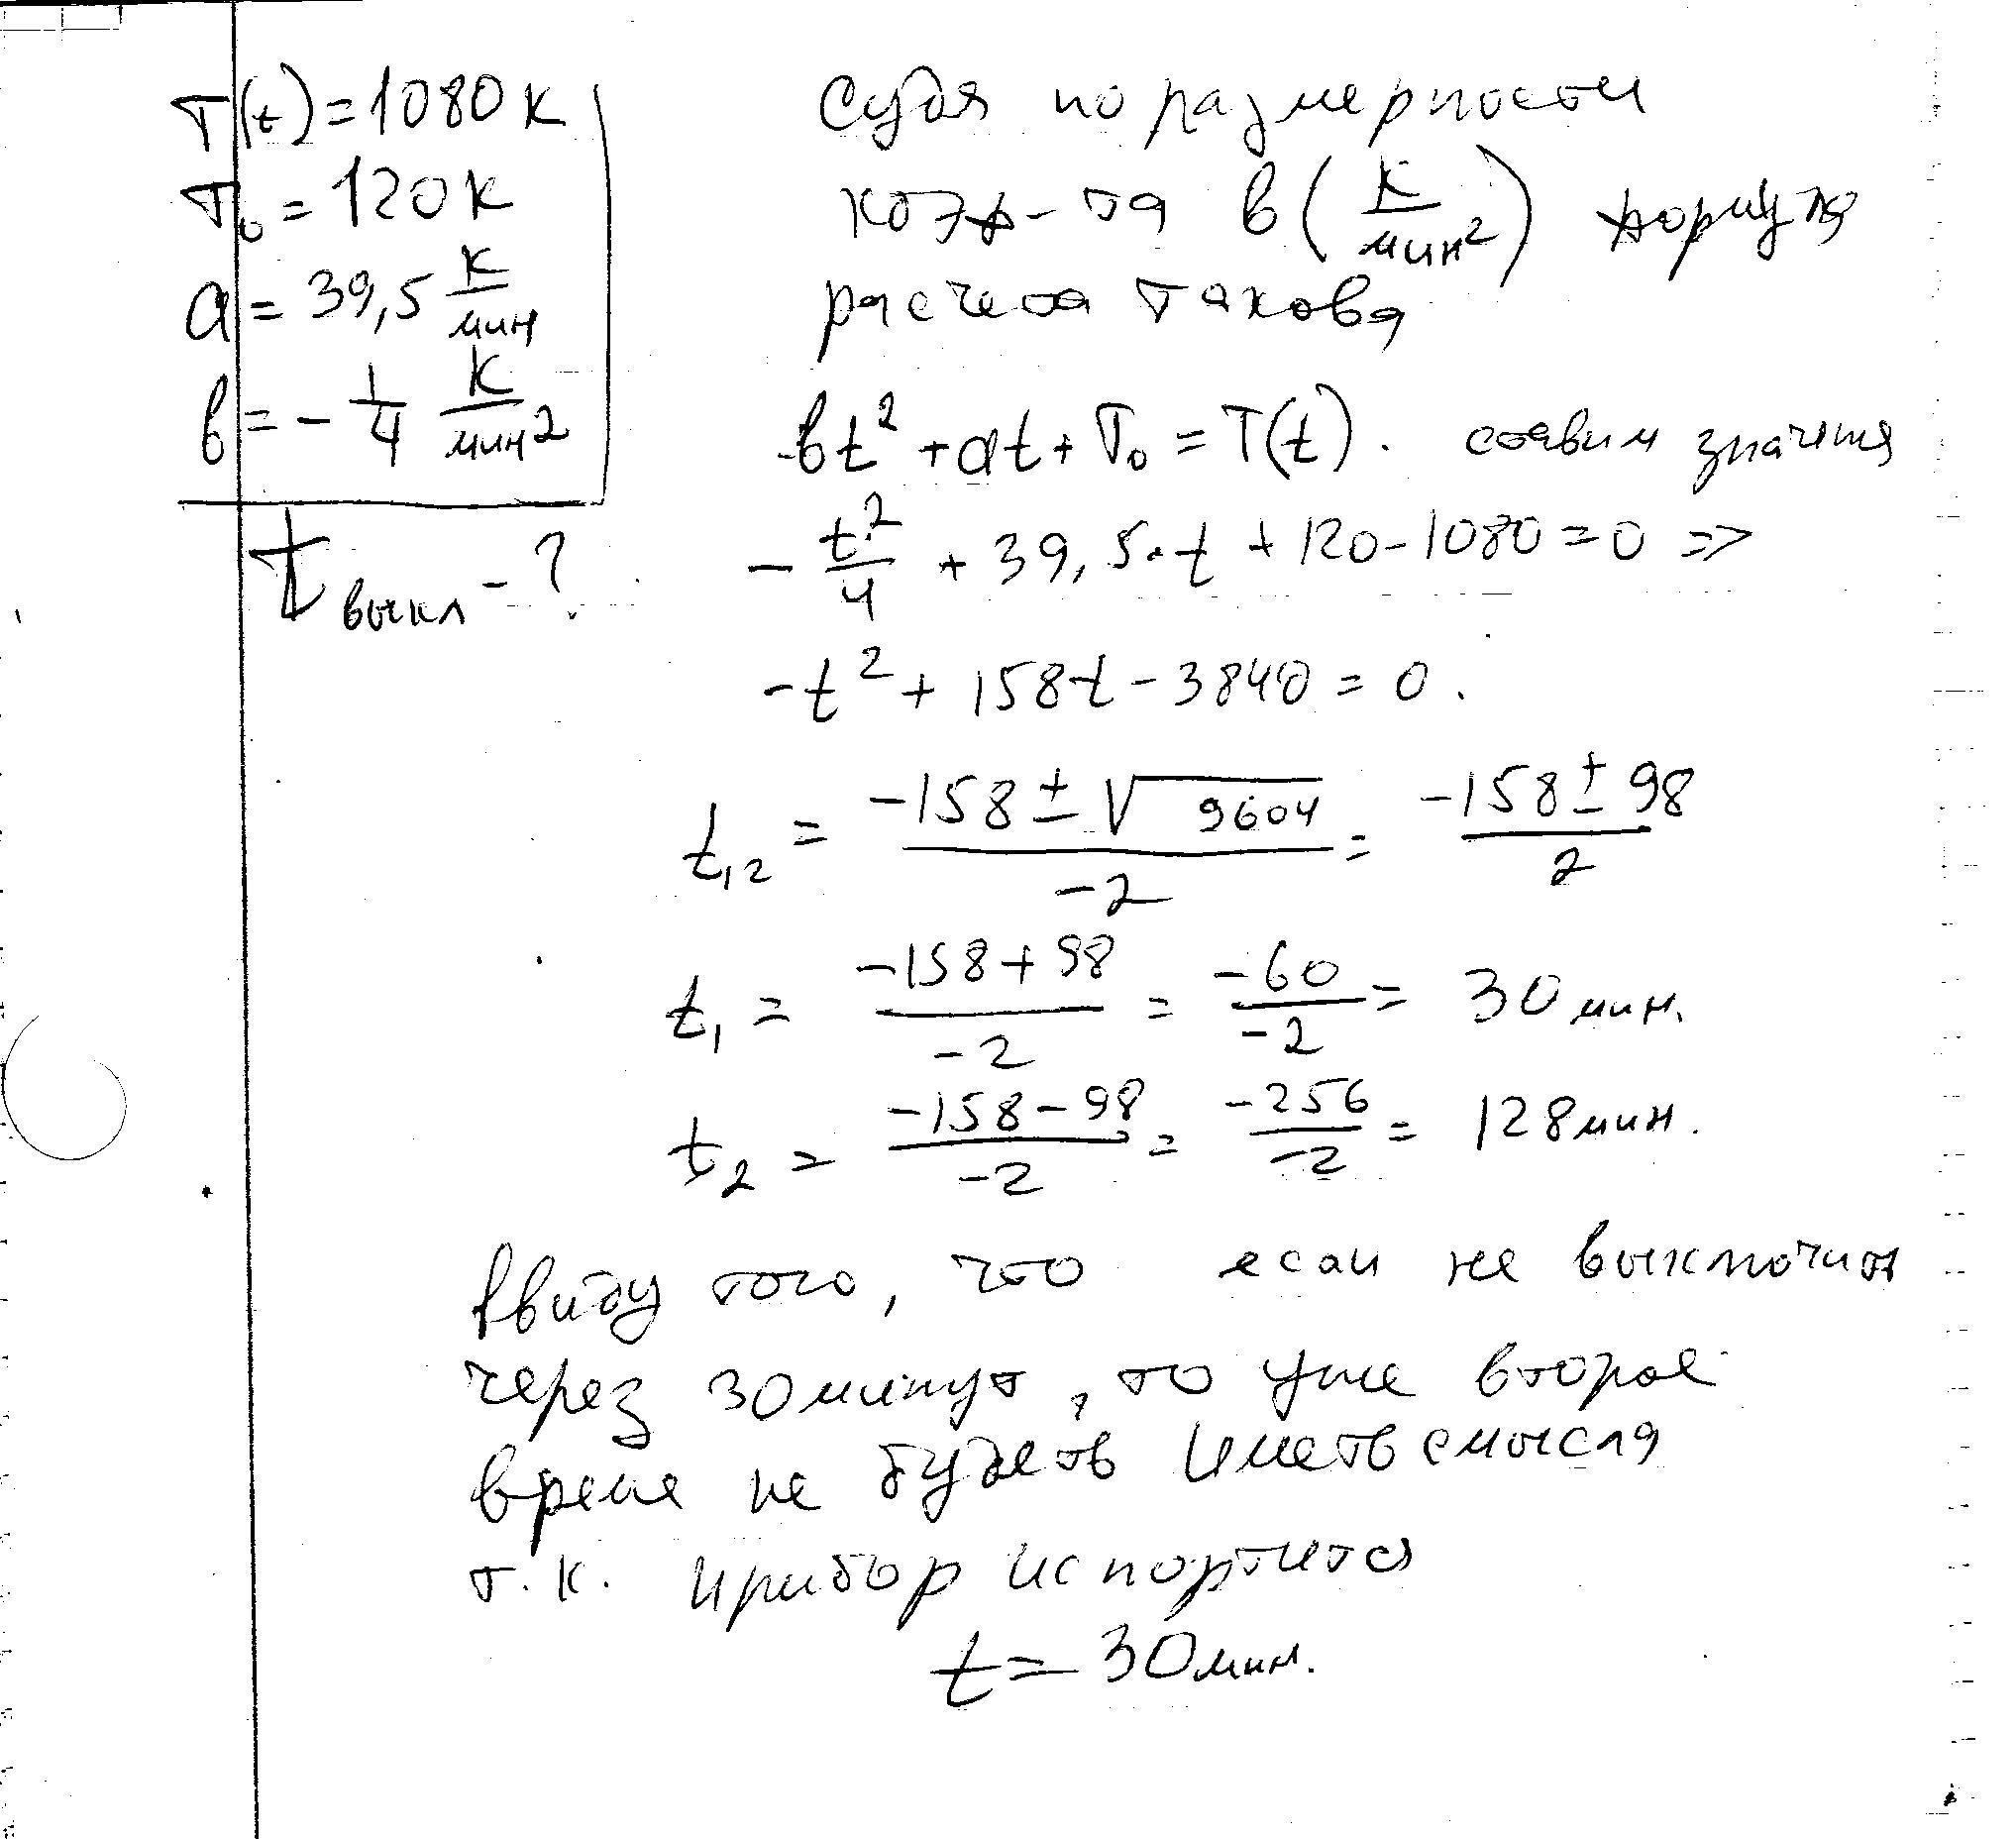 T(t)=1080 К
T₀=120К
a=39,5 К/мин
в=-1/4 К/мин²
t выкл - ?
Судя по размерности
коэф-та в(К/мин²) формула
расчета такова
вt²+at+T₀=T(t). ставим значения
-t²/4+39,5·t+120-1080=0 =>
-t²+158t-3840=0.
t₁,₂=(-158±√9604)/-2=(-158±98)/2
t₁=(-158+98)/-2=-60/-2=30 мин.
t₂=(-158-98)/-2=-256/-2=128 мин.
Ввиду того, что если не выключит
через 30 минут, то уже второе
время не будет иметь смысла
т.к. прибор испортится
t=30 мин.